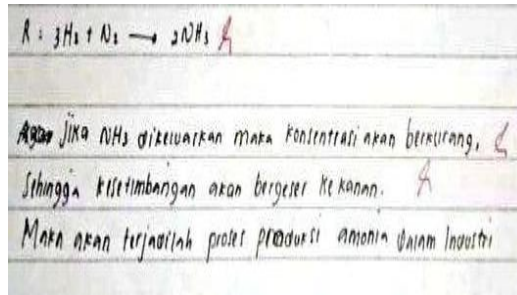 R : 3H2 + N2 → 2NH3
Jika NH3 dikeluarkan maka konsentrasi akan berkurang,
Sehingga kesetimbangan akan bergeser ke kanan.
Maka akan terjadilah proses produksi amonia dalam Industri